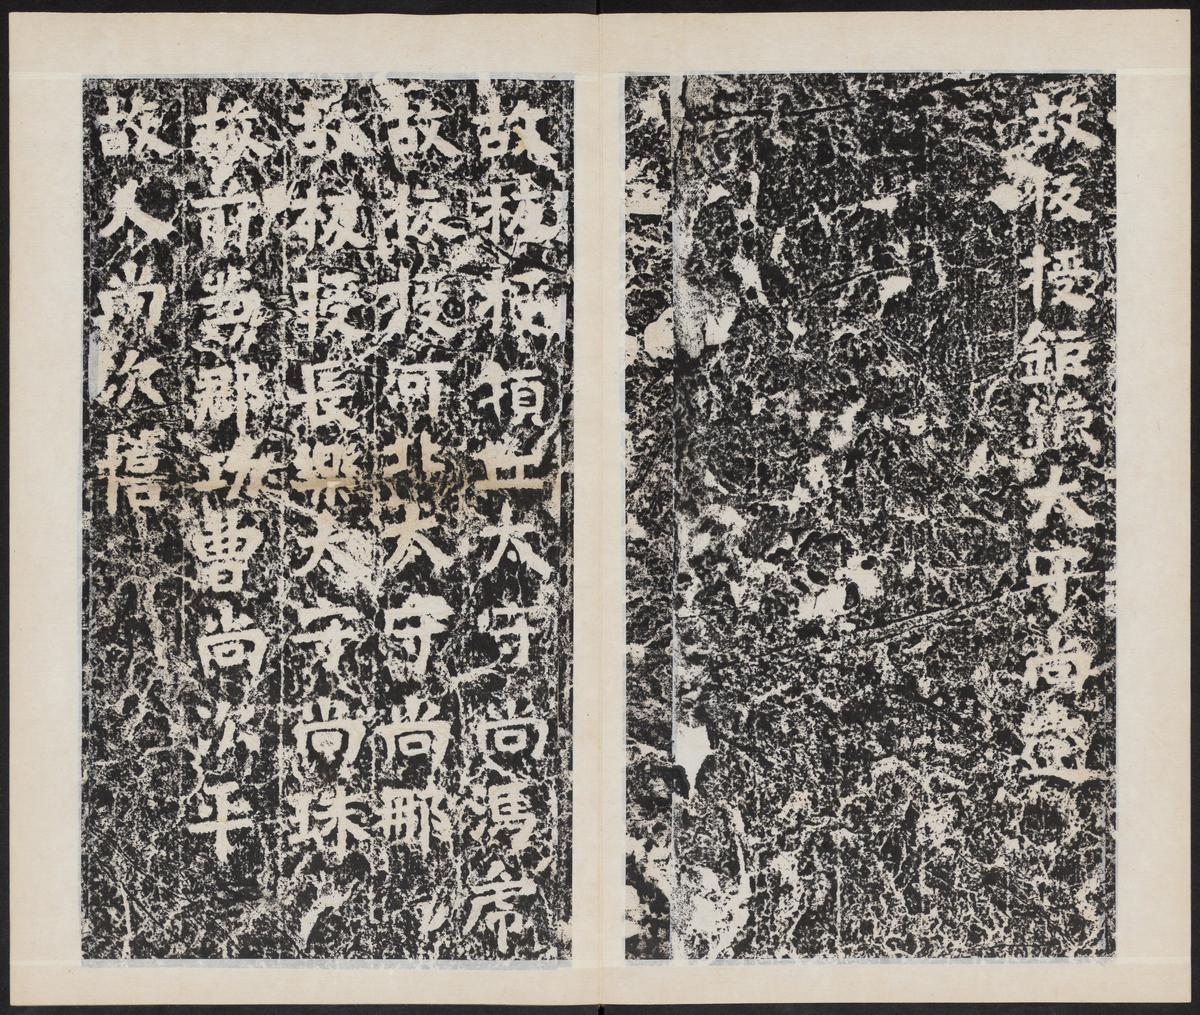 故板授鉅鹿太守尚
故板頓丘太守尚馮虎
故板授河北太守尚那
故板授長樂太守尚珠
故前為郡功曹尚次平
故人尚次